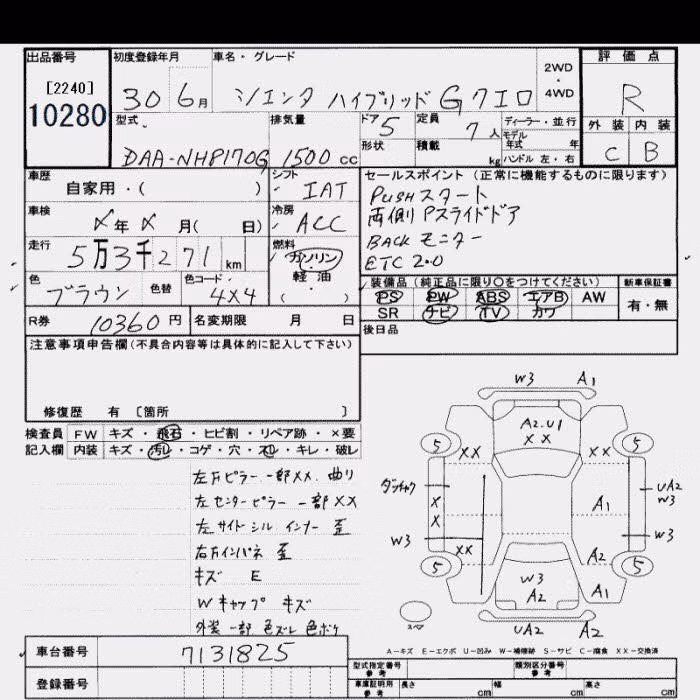 出品番号 初度登録年月 車名・グレード 評価点
[2240]
10280
30 6月 シエンタ ハイブリッド Gクエロ 2WD・4WD R
型式 排気量 ドア 5 定員 7人 ディーラー・並行 外装 内装
形状 積載 kg モデル年式 年
ハンドル 左・右
DAA-NHP170G 1500cc C B
車歴 シフト セールスポイント(正常に機能するものに限ります)
自家用・( ) IAT PUSHスタート
両側Pスライドドア
車検 冷房
メ年メ月( 日) ACC BACKモニター
走行 燃料 ETC2.0
5万3千271km ガソリン
軽油
( )
色 色替 色コード 装備品(純正品に限り○をつけてください) 新車保証書
ブラウン 4X4 PS PW ABS エアB AW 有・無
SR ナビ TV カワ
R券 10360円 名変期限 月 日 後日品
注意事項申告欄(不具合内容等は具体的に記入して下さい)
修復歴 有 [箇所 ]
検査員 FW キズ・飛石・ヒビ割・リペア跡・×要
記入欄 内装 キズ・汚レ・コゲ・穴・スレ・キレ・破レ
左Fピラー 一部XX.曲り
左センターピラー 一部XX
左サイドシル インナー 歪
右Fインパネ 歪
キズ E
Wキャップ キズ
外装一部色ズレ色ボケ
W3 A1
A2.U1
XX
5 XX XX 5
A1 UA2
W3
XX
W3 W3
XX A2
5 W3 5
A2 A1
スペア UA2 A2
A-キズ E-エクボ U-凹み W-補修跡 S-サビ C-腐食 XX-交換済
車台番号 7131825
登録番号
型式指定番号 参考 類別区分番号 参考
車庫証明用 参考 長さ cm 幅 cm 高さ cm